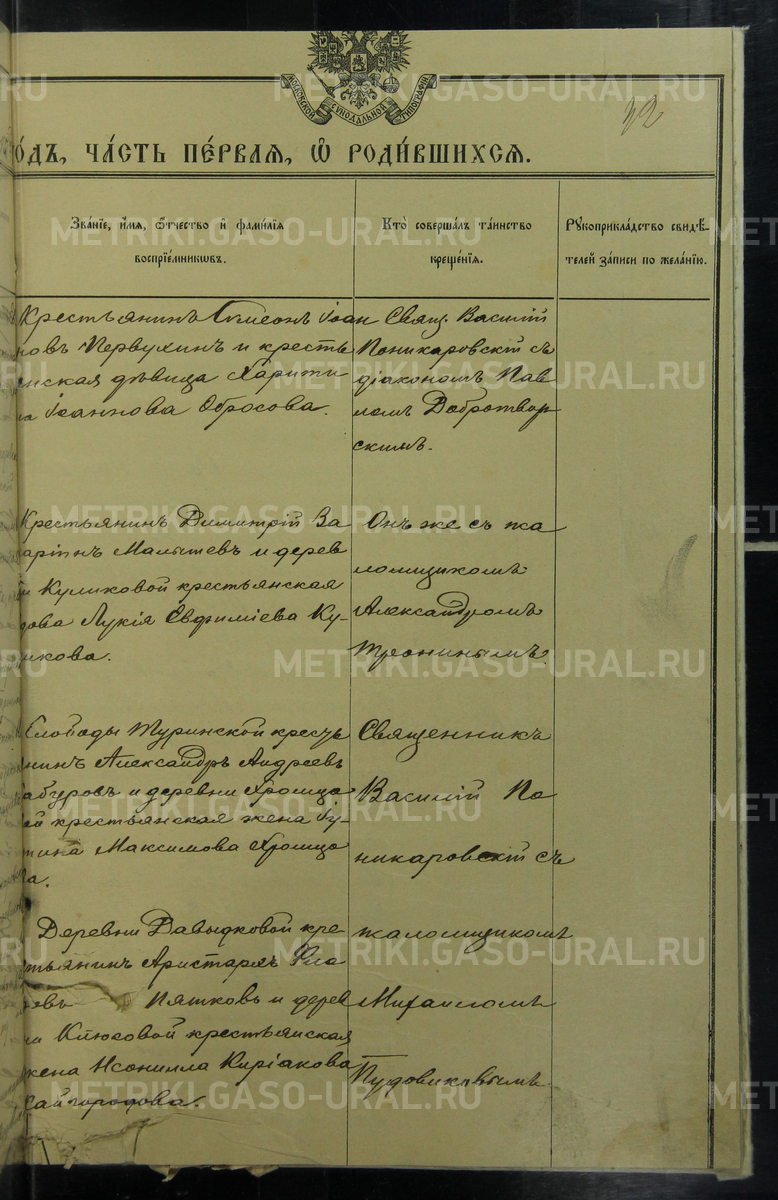 МОСКОВСКОЙ СѴНОДАЛЬНОЙ ТИПОГРАФІИ
ОДЪ, ЧАСТЬ ПЕРВАЯ, Ѡ РОДИВШИХСЯ.
Званіе, имя, отчество и фамилія
воспріемниковъ.
Кто совершалъ таинство
крещенія.
Рукоприкладство свидѣ-
телей записи по желанію.
Крестьянинъ Симеонъ Іоан
новъ Первухинъ и кресть
нская дѣвица Харити
на Іоаннова Обросова.
Свящ. Василій
Поникаровскій съ
діакономъ Пав
ломъ Добротвор
скимъ.
Крестьянинъ Димитрій За
харіинъ Малышевъ и дерев
Куликовой крестьянская
дова Лукія Евфиміева Ку-
ликова.
Онъ же съ пса
ломщикомъ
Александромъ
Трониныmъ.
Слободы Туринской кресть
нинъ Александръ Андреевъ
абуровъ и деревни Хромцо
ой крестьянская жена Іу-
тина Максимова Хромцо
ва.
Священникъ
Василій По
никаровскій съ
Деревни Давыдковой кре
тьянинъ Аристархъ
Пятковъ и дерев
ни Клюсовой крестьянская
жена Нсонилла Киріакова
Сайгородова.
псаломщикомъ
Михаиломъ
Пудовиковымъ
METRIKI.GASO-URAL.RU